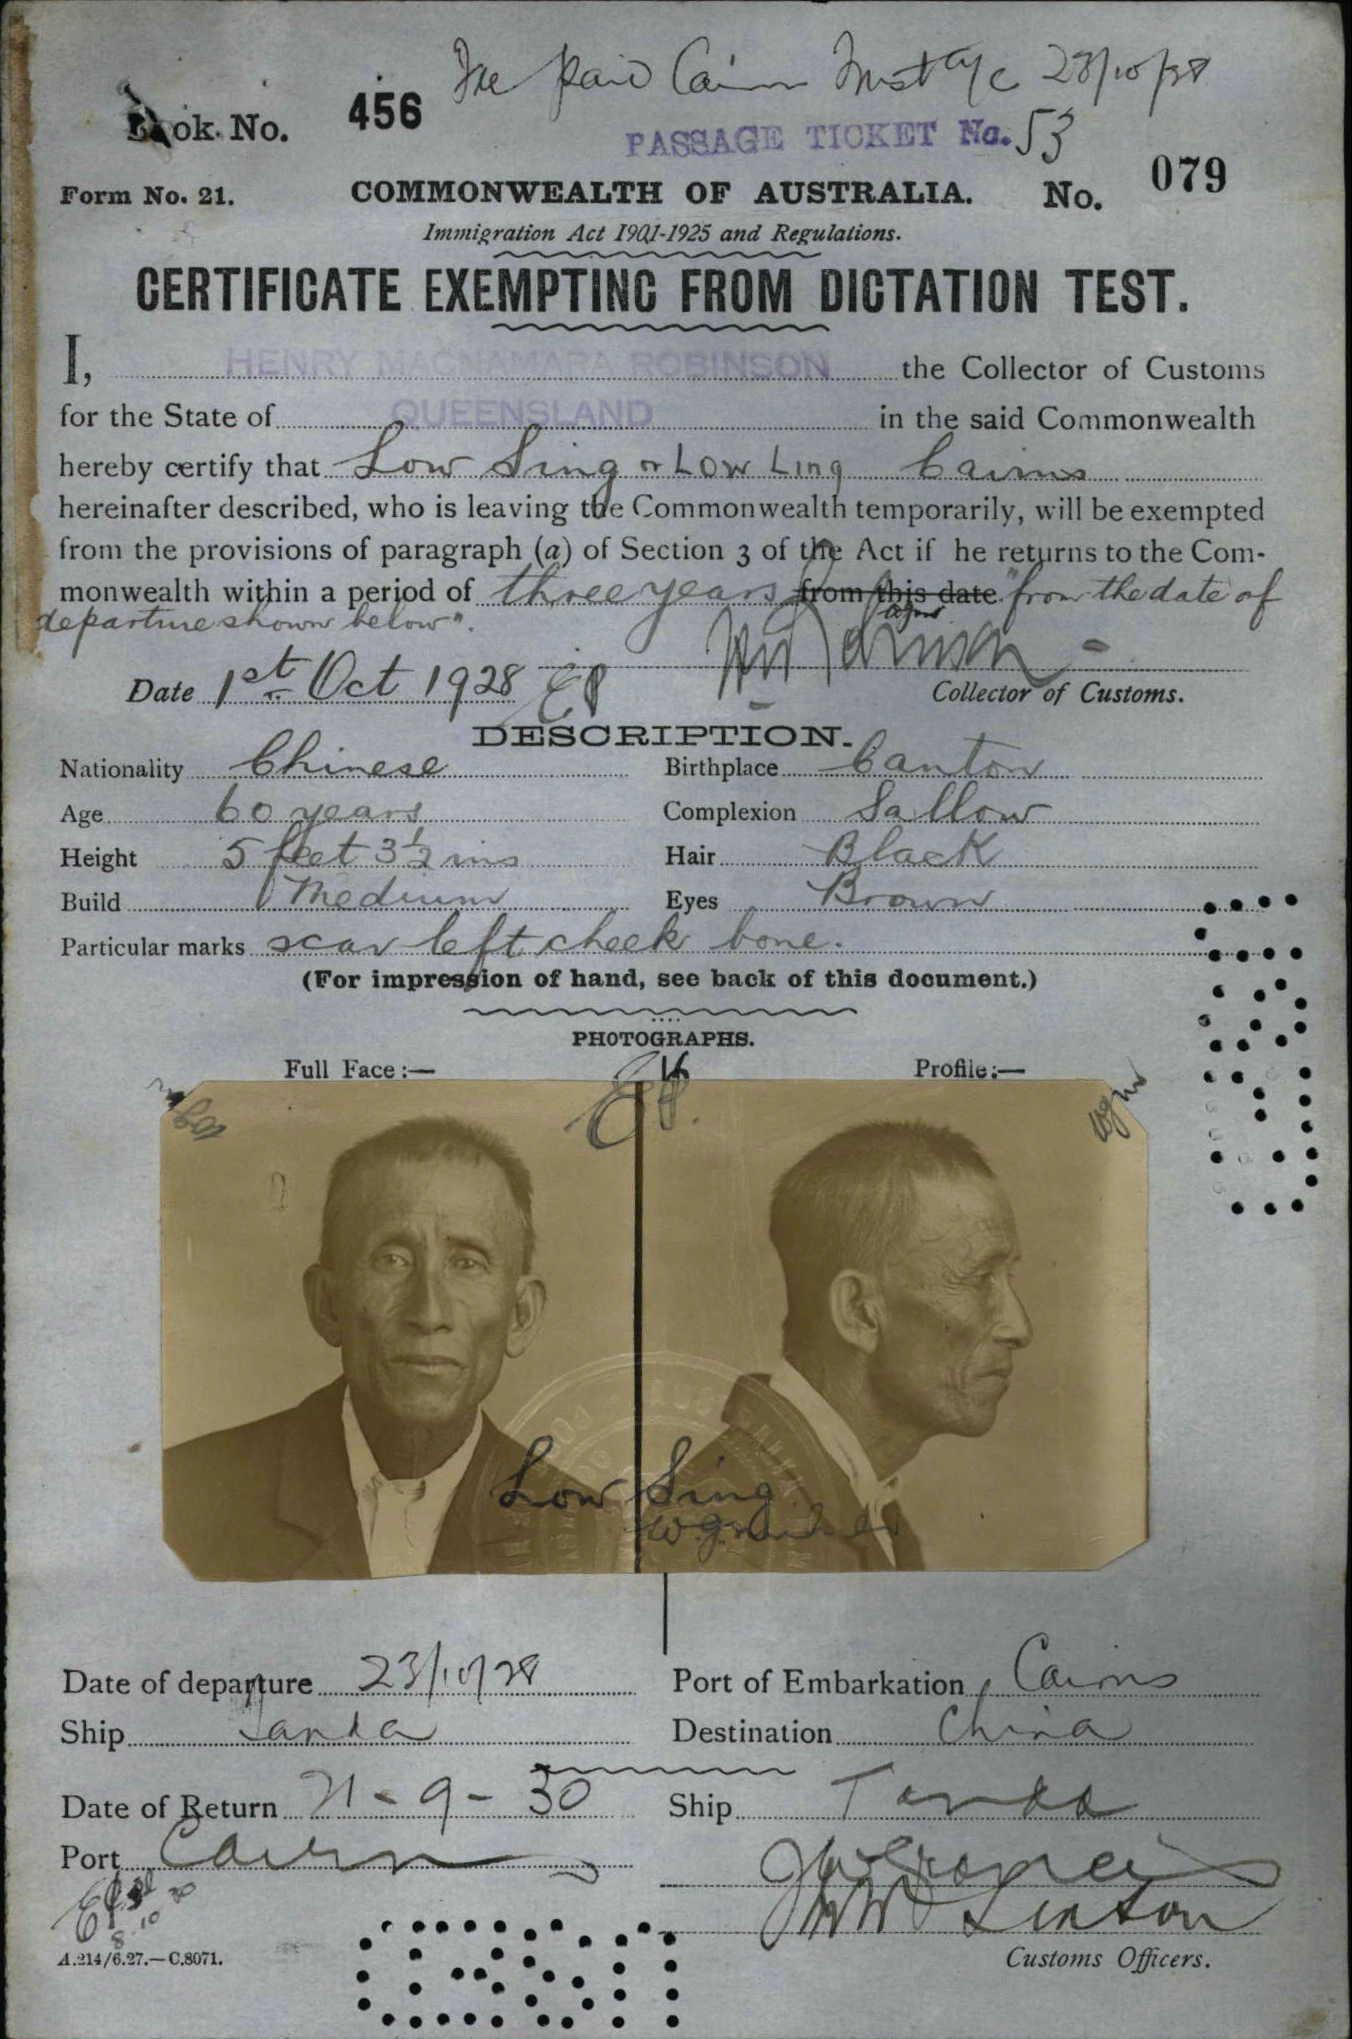 paid Cairns Trust a/c 23/10/28
Book No. 456
PASSAGE TICKET No. 53
Form No. 21. COMMONWEALTH OF AUSTRALIA. No. 079
Immigration Act 1901-1925 and Regulations.
CERTIFICATE EXEMPTING FROM DICTATION TEST.
I, HENRY MACNAMARA ROBINSON the Collector of Customs
for the State of QUEENSLAND in the said Commonwealth
hereby certify that Low Sing or Low Ling Cairns
hereinafter described, who is leaving the Commonwealth temporarily, will be exempted
from the provisions of paragraph (a) of Section 3 of the Act if he returns to the Com-
monwealth within a period of three years from this date "from the date of
departure shown below".
Date 1st Oct 1928 Collector of Customs.
DESCRIPTION.
Nationality Chinese Birthplace Canton
Age 60 years Complexion Sallow
Height 5 feet 3½ ins Hair Black
Build Medium Eyes Brown
Particular marks scar left cheek bone.
(For impression of hand, see back of this document.)
PHOTOGRAPHS.
Full Face:— Profile:—
Low Sing
Date of departure 23/10/28 Port of Embarkation Cairns
Ship Tanda Destination China
Date of Return 21-9-30 Ship Tanda
Port Cairns
Linton
A.214/6.27.—C.8071. Customs Officers.